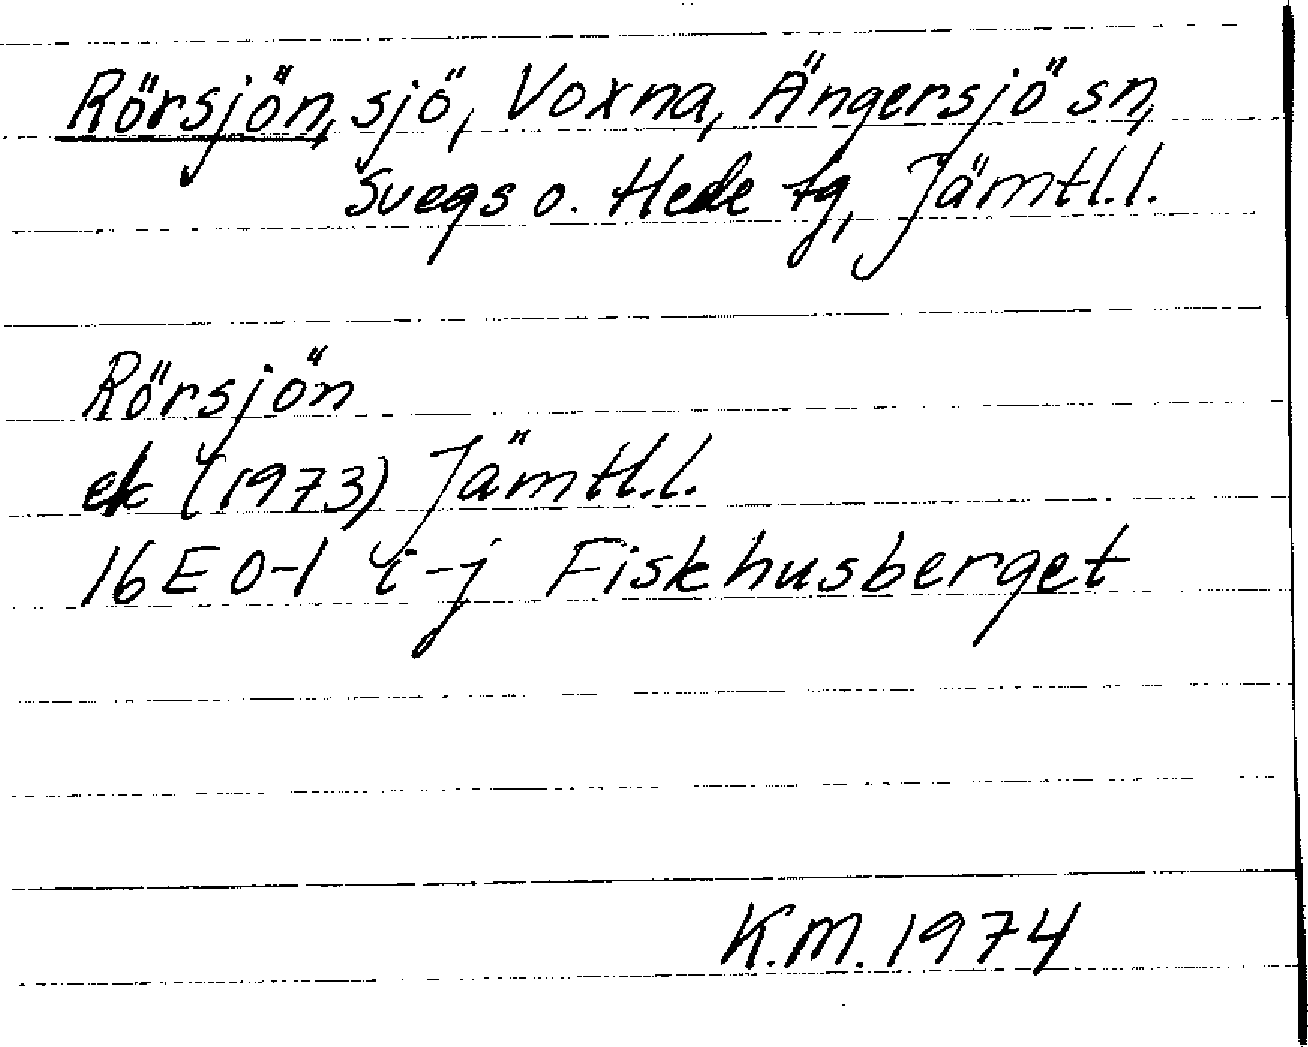 Rörsjön, sjö, Voxna, Ängersjö sn,
Svegs o. Hede tg, Jämtl.l.
Rörsjön
ek (1973) Jämtl.l.
16E 0-1 i-j Fiskhusberget
K.M. 1974